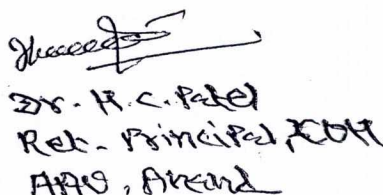 Dr. H. C. Patel
Ret. Principal, COH
AAU, Anand